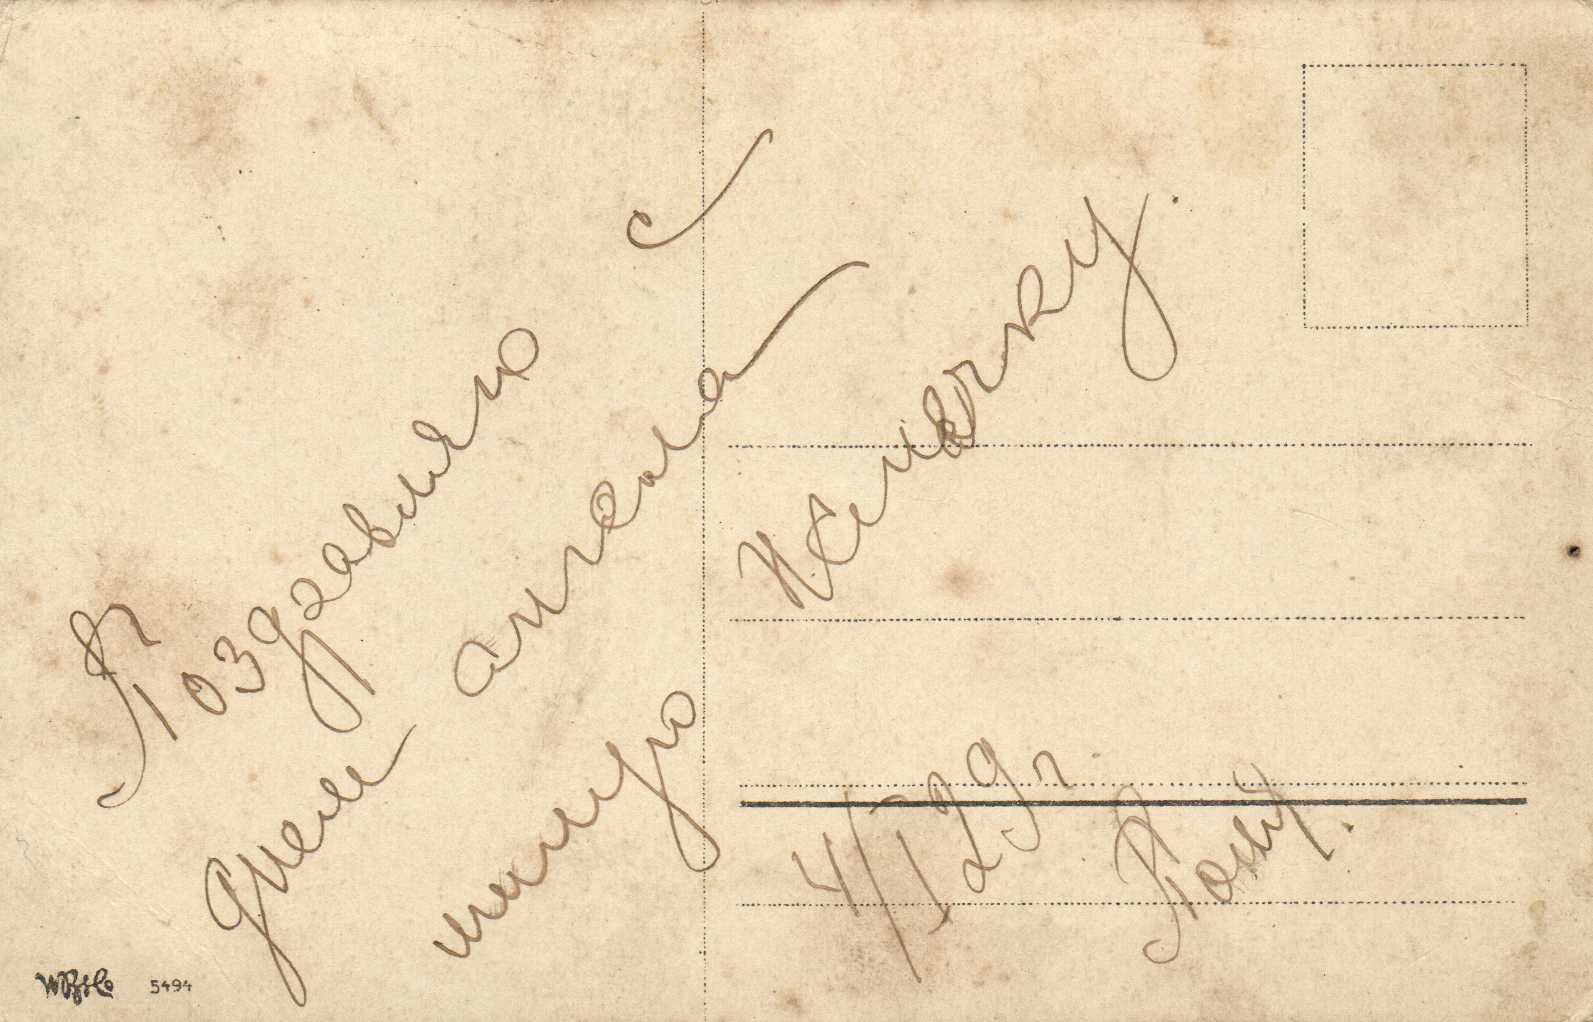 Поздравляю с
днем ангела
милую
Женечку.
4/I 29 г.
5494